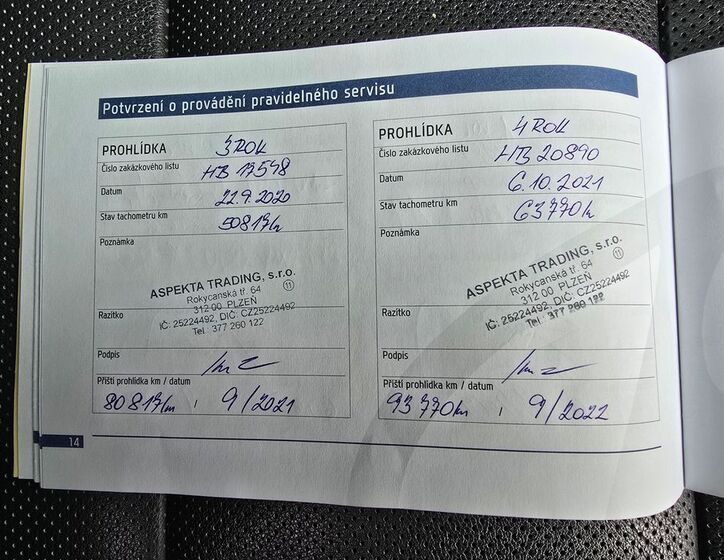 Potvrzení o provádění pravidelného servisu
PROHLÍDKA 3 ROK
Číslo zakázkového listu HB 17548
Datum 22.9.2020
Stav tachometru km 50817km
Poznámka
ASPEKTA TRADING, s.r.o.
Rokycanská tř. 64
312 00 PLZEŇ 11
IČ: 25224492, DIČ: CZ25224492
Tel.: 377 260 122
Razítko
Podpis
Příští prohlídka km / datum
80 817km , 9/2021
PROHLÍDKA 4 ROK
Číslo zakázkového listu HB 20890
Datum 6.10.2021
Stav tachometru km 63770km
Poznámka
ASPEKTA TRADING, s.r.o.
Rokycanská tř. 64
312 00 PLZEŇ 11
IČ: 25224492, DIČ: CZ25224492
Tel.: 377 260 122
Razítko
Podpis
Příští prohlídka km / datum
93 770km , 9/2022
14